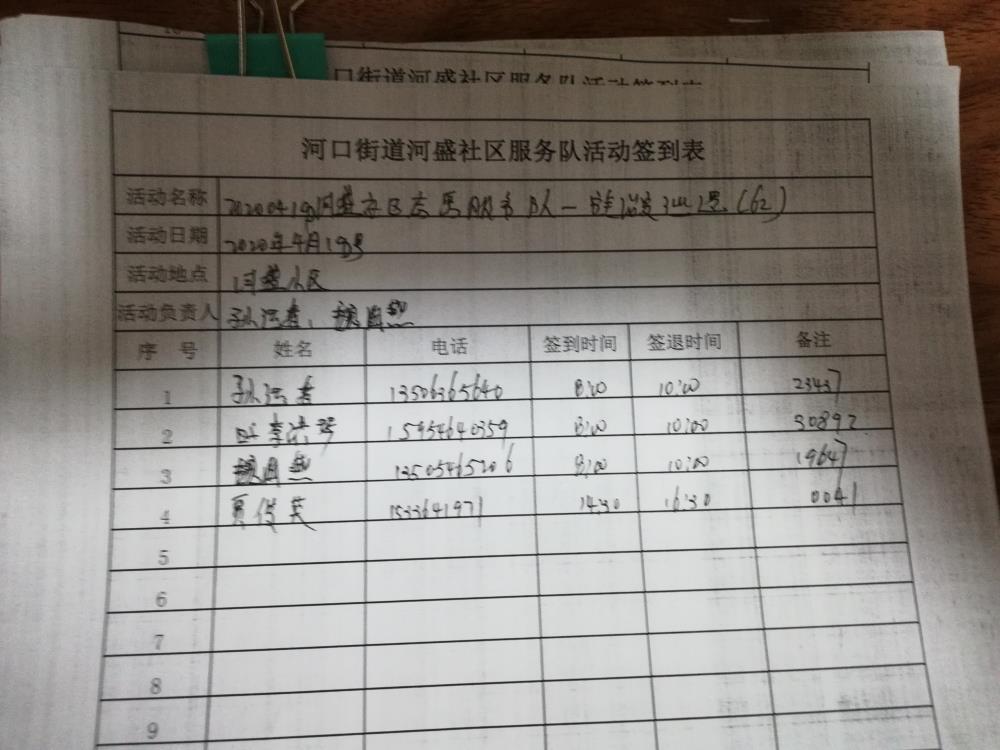 口街道河盛社区服务队活动签到表
河口街道河盛社区服务队活动签到表
活动名称 20200418河盛社区志愿服务队一 (62)
活动日期 2020年4月18号
活动地点 河盛小区
活动负责人 孙
序 号 姓名 电话 签到时间 签退时间 备注
1 孙 13506365640 8:00 10:00 2343
2 李 15954640359 8:00 10:00 30892
3 13505465206 8:00 10:00 19647
4 夏俊英 1533641971 14:30 16:30 0041
5
6
7
8
9